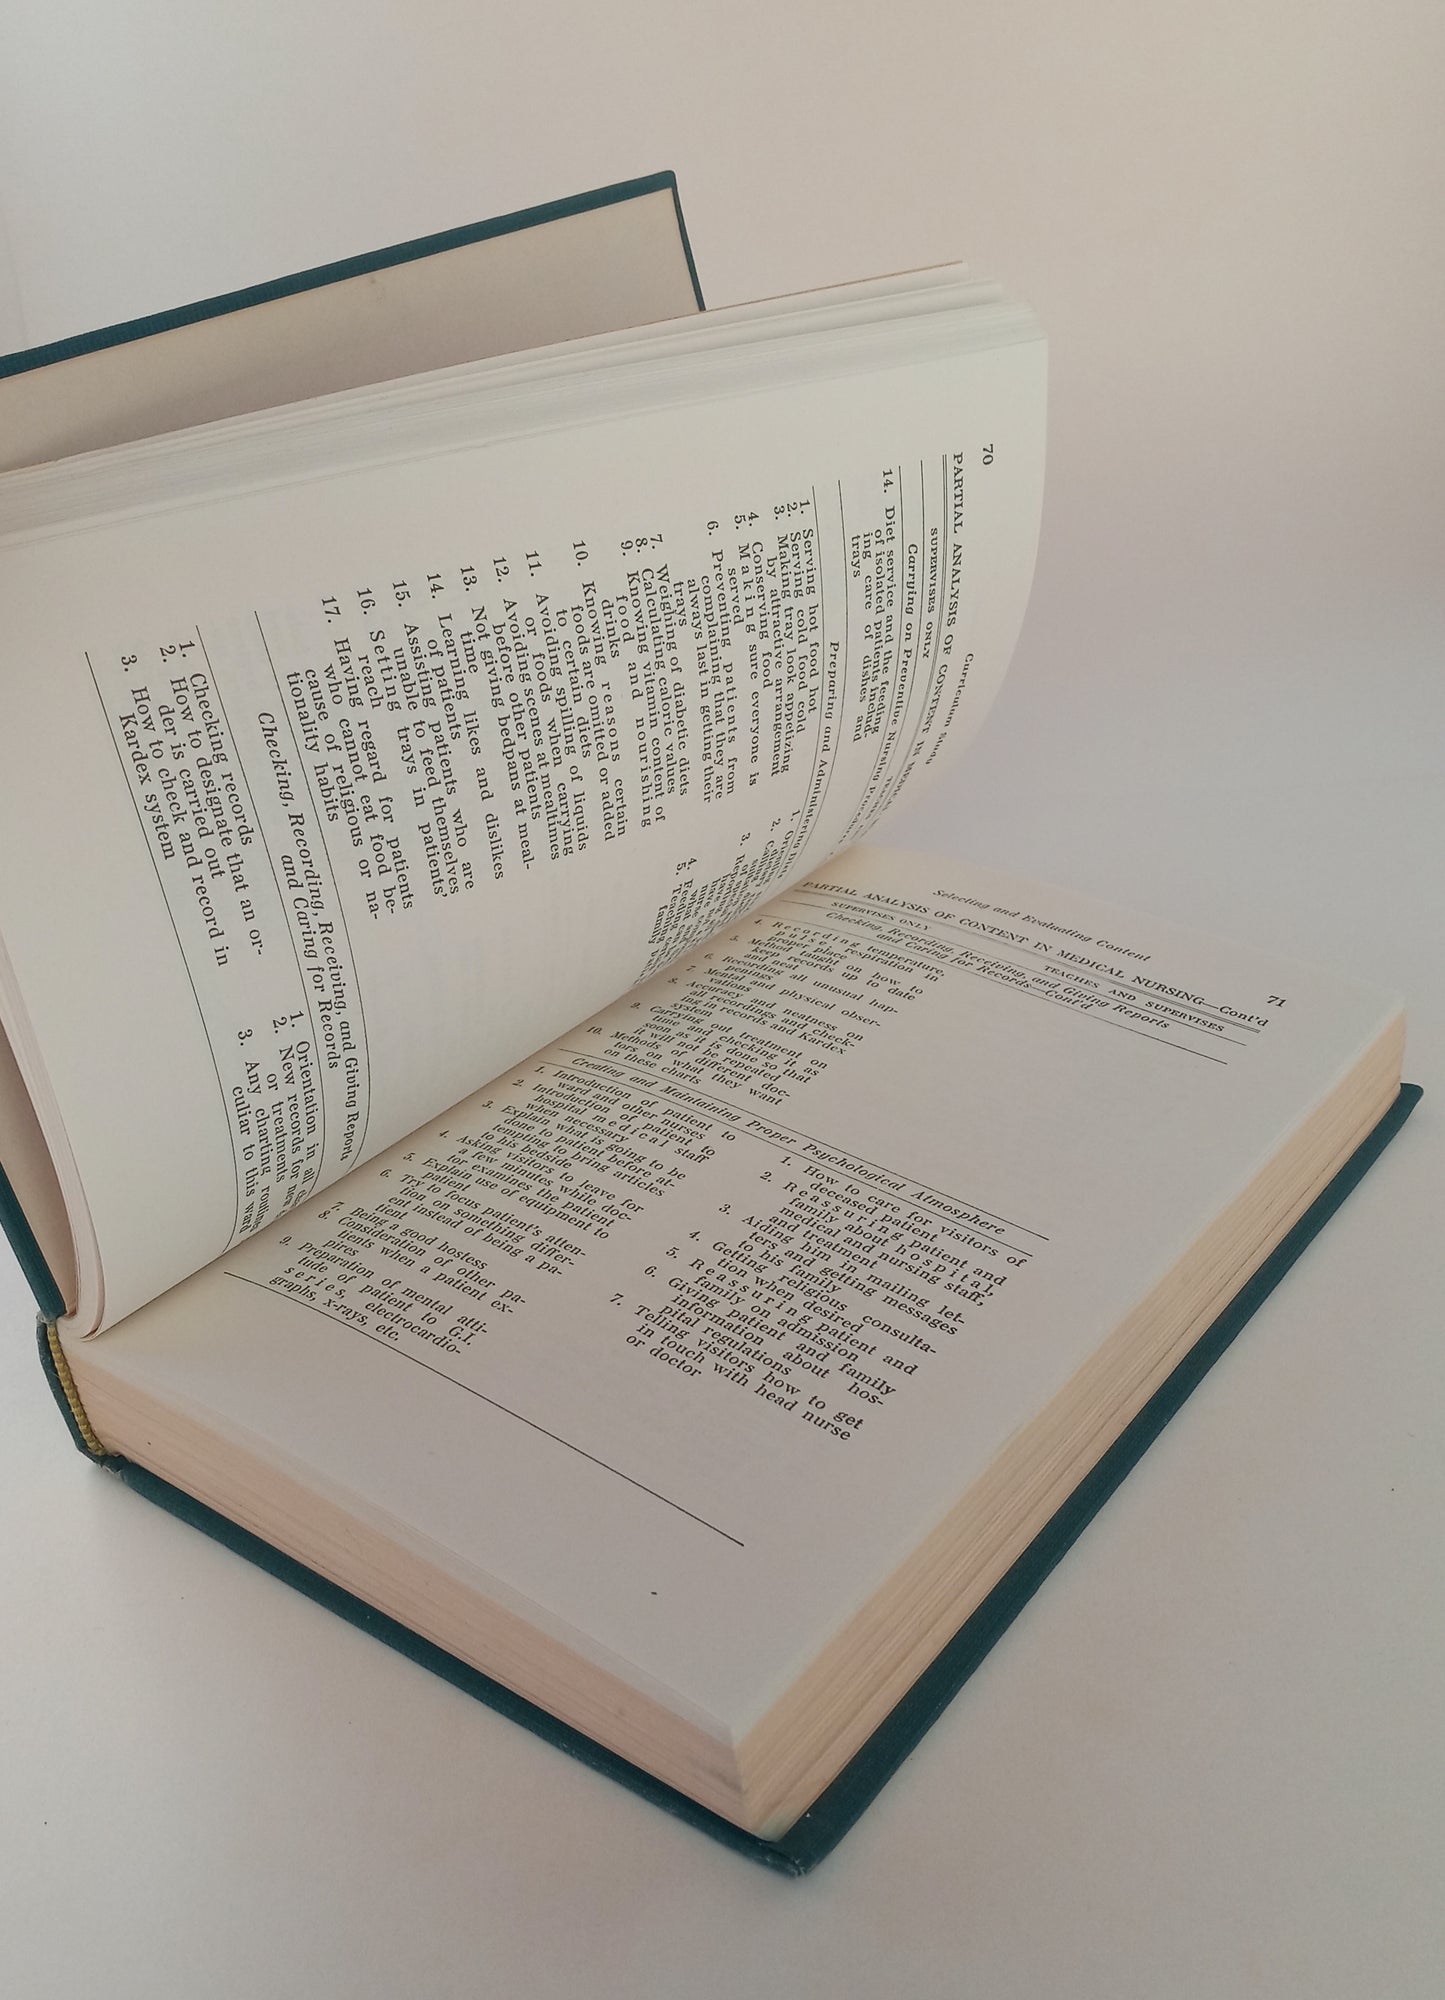 70
Curriculum Study
PARTIAL ANALYSIS OF CONTENT IN
SUPERVISES ONLY
Carrying on Preventive Nursing
14. Diet service and the feeding
of isolated patients includ-
ing care of dishes and
trays
Preparing and Administering
1. Serving hot food hot
2. Serving cold food cold
3. Making tray look appetizing
by attractive arrangement
4. Conserving food
5. Making sure everyone is
served
6. Preventing patients from
complaining that they are
always last in getting their
trays
7. Weighing of diabetic diets
8. Calculating caloric values
9. Knowing vitamin content of
food and nourishing
drinks
10. Knowing reasons certain
foods are omitted or added
to certain diets
11. Avoiding spilling of liquids
or foods when carrying
12. Avoiding scenes at mealtimes
before other patients
13. Not giving bedpans at meal-
time
14. Learning likes and dislikes
of patients
15. Assisting patients who are
unable to feed themselves
16. Setting trays in patients'
reach
17. Having regard for patients
who cannot eat food be-
cause of religious or na-
tionality habits
1.
2.
3.
4.
5.
Checking, Recording, Receiving, and Giving Reports
and Caring for Records
1. Checking records
2. How to designate that an or-
der is carried out
3. How to check and record in
Kardex system
1. Orientation in all
2. New records for new
or treatments
3. Any charting
culiar to this ward
Selecting and Evaluating Content
71
PARTIAL ANALYSIS OF CONTENT IN MEDICAL NURSING—Cont'd
SUPERVISES ONLY
TEACHES AND SUPERVISES
Checking, Recording, Receiving, and Giving Reports
and Caring for Records—Cont'd
4. Recording temperature,
pulse, respiration in
proper place
5. Method taught on how to
keep records up to date
and neat
6. Recording all unusual hap-
penings
7. Mental and physical obser-
vations
8. Accuracy and neatness on
all recordings and check-
ing in records and Kardex
system
9. Carrying out treatment on
time and checking it as
soon as it is done so that
it will not be repeated
10. Methods of different doc-
tors on what they want
on these charts
Creating and Maintaining Proper Psychological Atmosphere
1. Introduction of patient to
ward and other nurses
2. Introduction of patient to
hospital medical staff
when necessary
3. Explain what is going to be
done to patient before at-
tempting to bring articles
to his bedside
4. Asking visitors to leave for
a few minutes while doc-
tor examines the patient
5. Explain use of equipment to
patient
6. Try to focus patient's atten-
tion on something differ-
ent instead of being a pa-
tient
7. Being a good hostess
8. Consideration of other pa-
tients when a patient ex-
pires
9. Preparation of mental atti-
tude of patient to G.I.
series, electrocardio-
graphs, x-rays, etc.
1. How to care for visitors of
deceased patient
2. Reassuring patient and
family about hospital,
medical and nursing staff,
and treatment
3. Aiding him in mailing let-
ters and getting messages
to his family
4. Getting religious consulta-
tion when desired
5. Reassuring patient and
family on admission
6. Giving patient and family
information about hos-
pital regulations
7. Telling visitors how to get
in touch with head nurse
or doctor